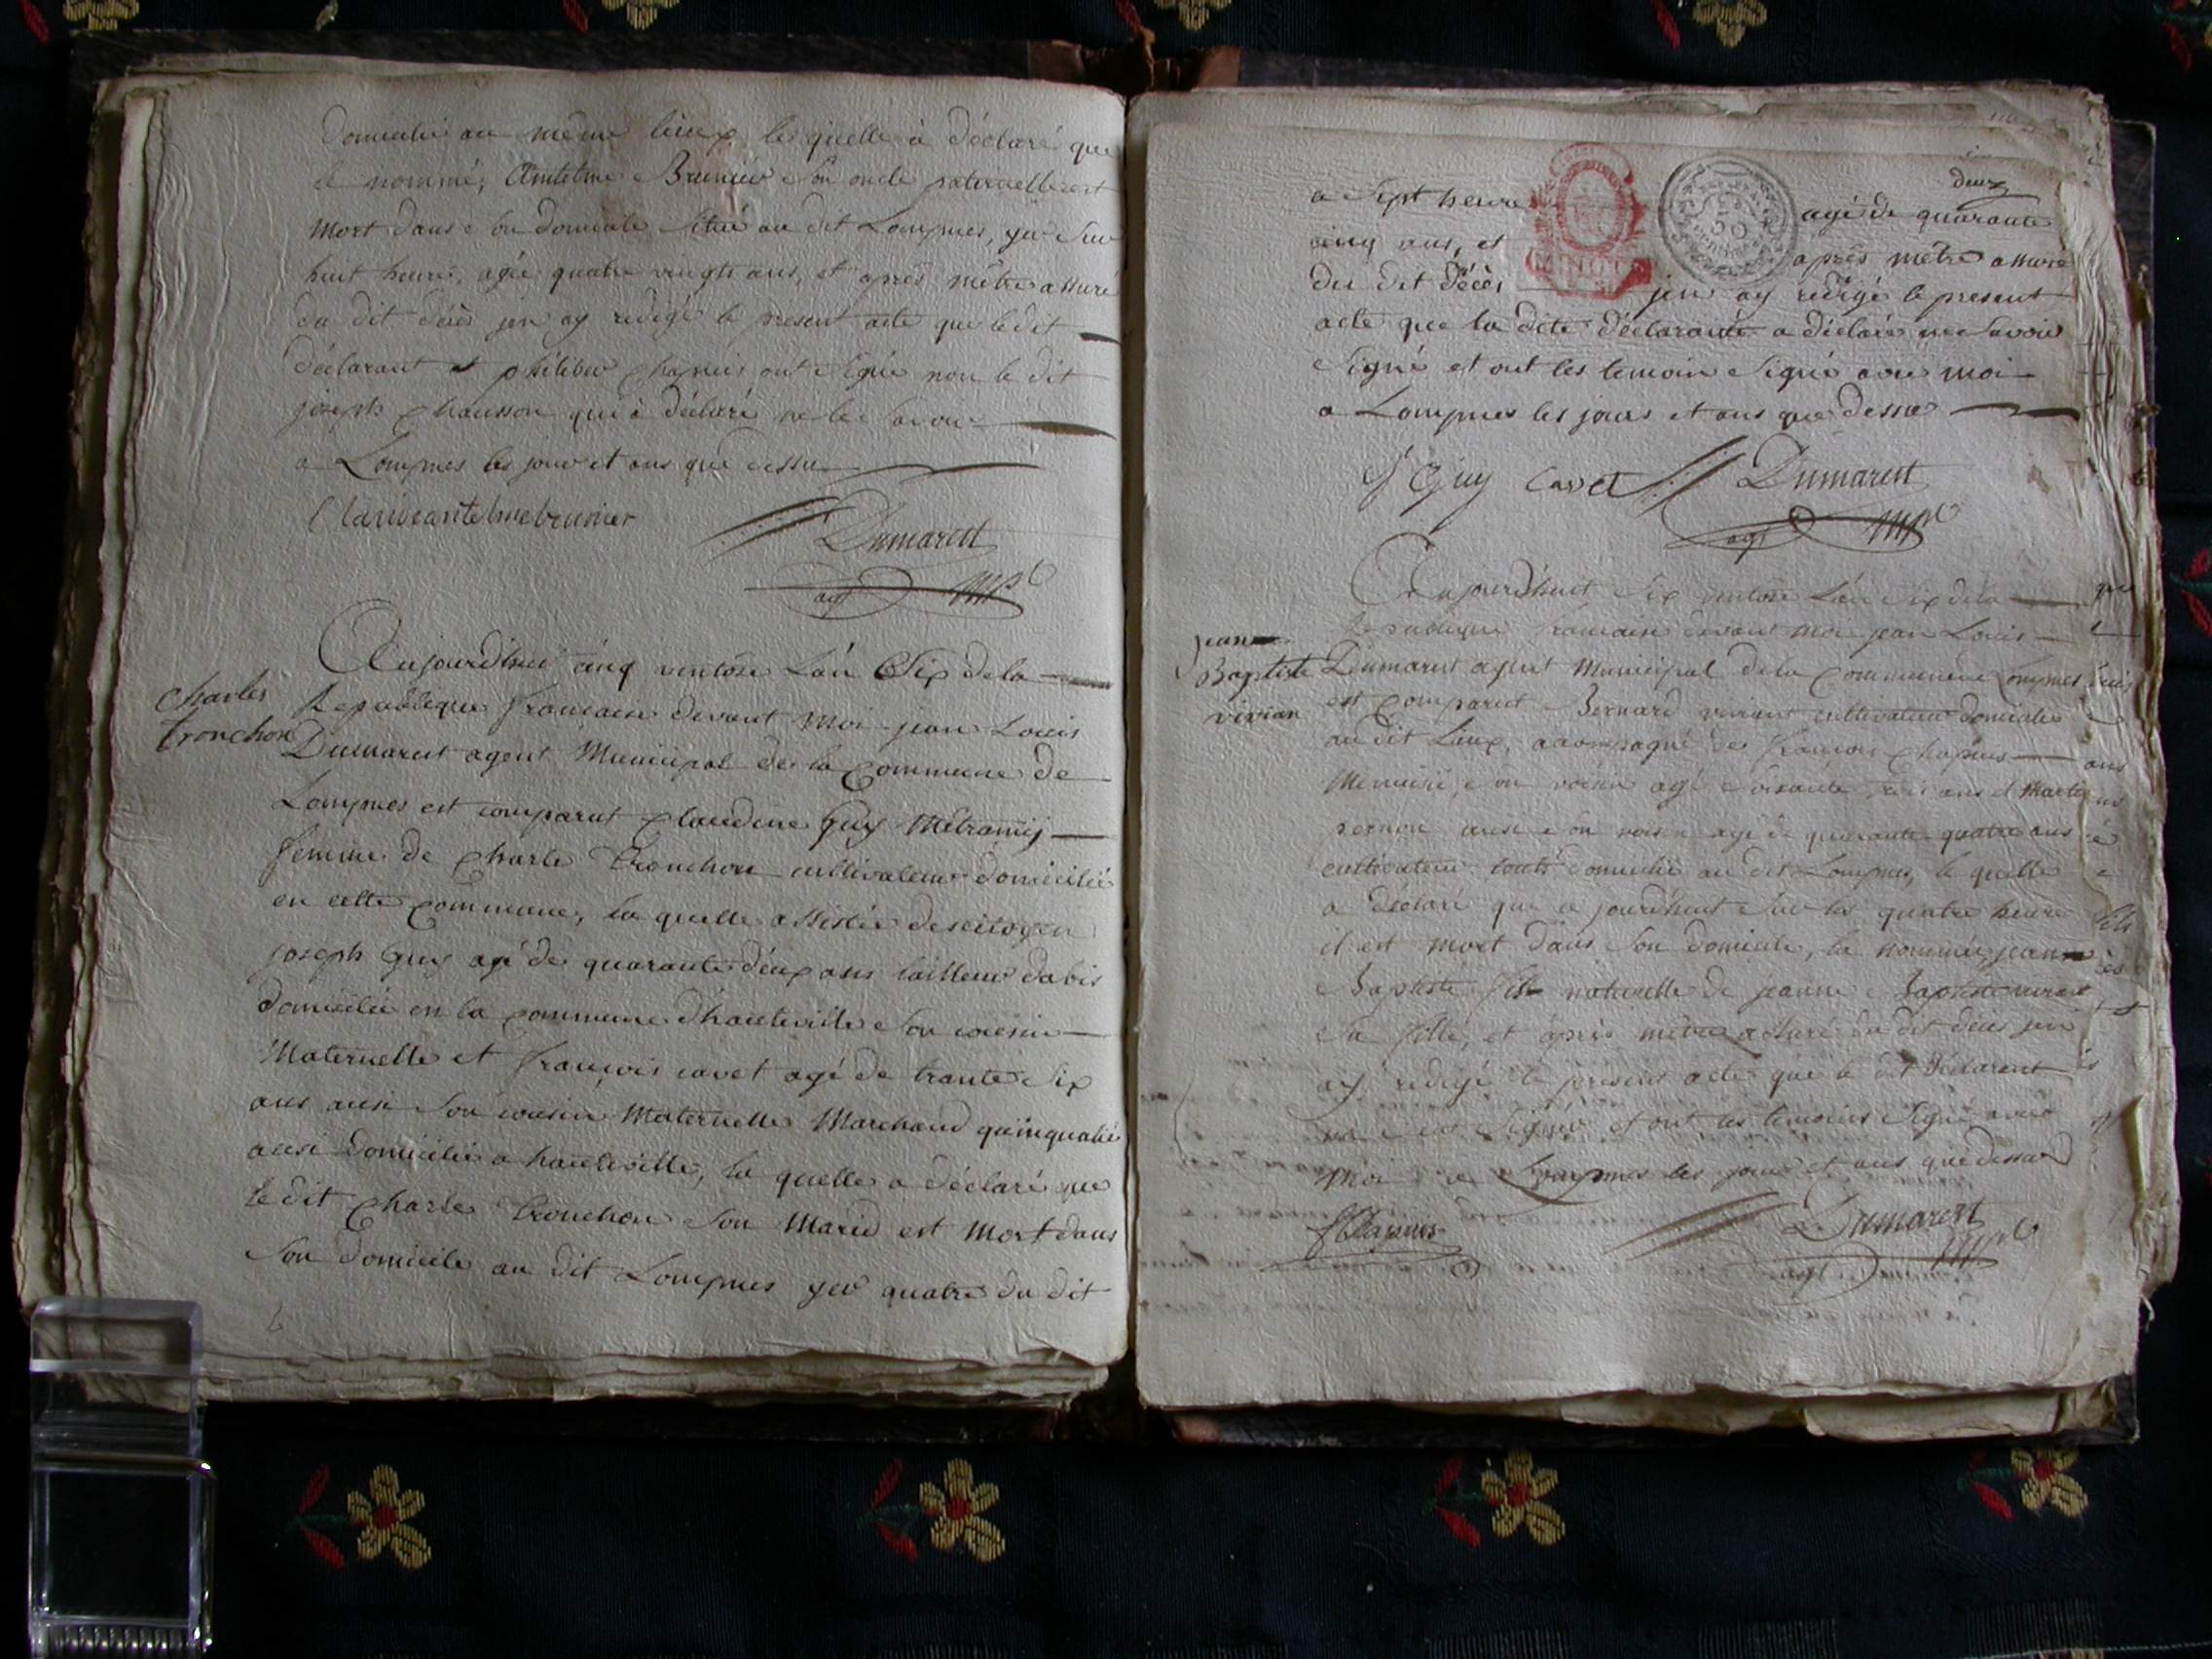 Domicilié au même lieux le quelle à déclaré que
le nommé, Antelme Brunier son oncle paternelle est
mort dans son domicile situé au dit Lompnes, yer sur
huit heure, agée quatre vingts ans, et après mêtre assuré
du dit décès jen ay redigé le present acte que le dit
déclarant et philiber chapuis ont signé non le dit
joseph chausson qui à déclaré ne le savoir
a Lompnes les jour et ans que dessu
Claudeantelmebrunier
Dumarest
agt mpl
Aujourdhui cinq ventose Lan Six de la
charles
tronchon
Republique francaise devant moi jean Louis
Dumarest agent Municipal de la Commune de
Lompnes est comparut claudine Guy
femme de charle Tronchon cultivateur domicilié
en cette commune, la quelle assistée de citoyen
joseph Guy agé de quarante deux ans tailleur dabis
domicilié en la commune dhauteville son cousin
Maternelle et françois cavet agé de trante six
ans ausi son cousin Maternelle Marchand quinqualié
ausi domicilié a hauteville, la quelle a déclaré que
le dit charle Tronchon son Marid est mort dans
son domicile au dit Lompnes yer quatre du dit
deux
a Sept heure agé de quarante
cinq ans, et après mêtre assuré
du dit décès jen ay redigé le present
acte que la dite déclarante a déclaré ne savoir
signé et ont les temoin signé avec moi
a Lompnes les jours et ans que dessue
J Guy Cavet Dumarest
agt mpl
Aujourdhuit six ventose Lan Six de la
jean
Baptiste
vivian
Republique francaise devant moi jean Louis
Dumarest agent Municipal de la Commune Lompnes
est comparut Bernard viviant cultivateur domicilié
au dit Lieux, acompagné de françois chapuis
Menuisié, son voisin agé soisante trois ans et Martin
pernon ausi son voisin agé de quarante quatre ans
cultivateur touts domicilié au dit Lompnes, le quelle
a déclaré que a jourdhuit sur les quatre heure
il est mort dans son domicile, la nommée jean
Baptiste fils naturelle de jeanne Baptiste viviant
sa fille, et après mêtre assuré du dit décès jen
ay redigé le present acte que le dit déclarent
na seut signér et ont les temoins signé avec
moi a Lompnes les jour et ans que dessu
f Chapuis Dumarest
agt mpl